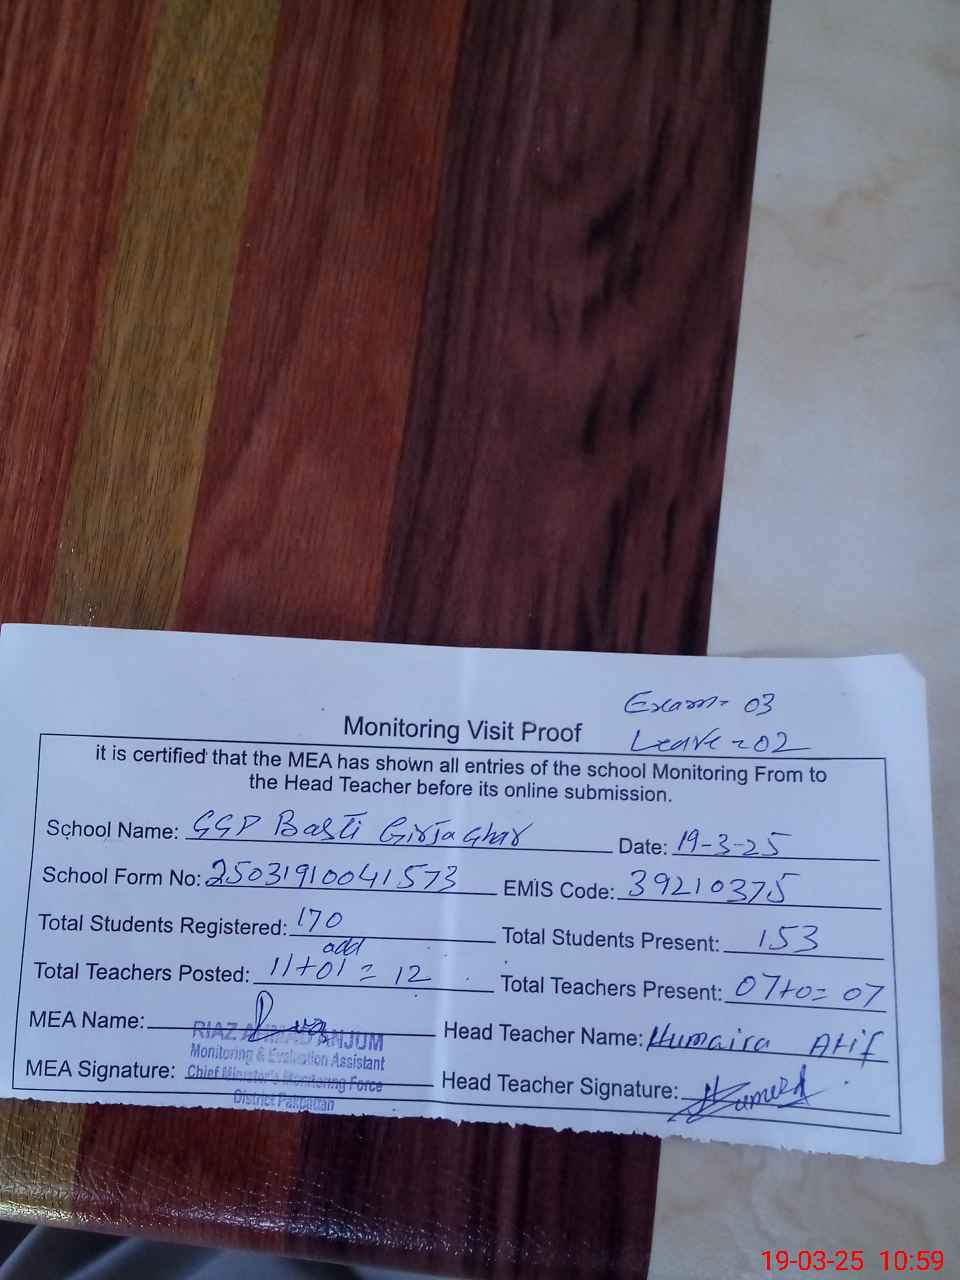 Exam = 03
Leave = 02
Monitoring Visit Proof
it is certified that the MEA has shown all entries of the school Monitoring From to
the Head Teacher before its online submission.
School Name: GGP Basti Girja Ghar Date: 19-3-25
School Form No: 25031910041573 EMIS Code: 39210375
Total Students Registered: 170 Total Students Present: 153
add
Total Teachers Posted: 11+01 = 12 Total Teachers Present: 07+0= 07
MEA Name: RIAZ AHMAD ANJUM Head Teacher Name: Humaira Atif
Monitoring & Evaluation Assistant
MEA Signature: Chief Minister's Monitoring Force Head Teacher Signature: Humera
District Pakpattan
19-03-25 10:59